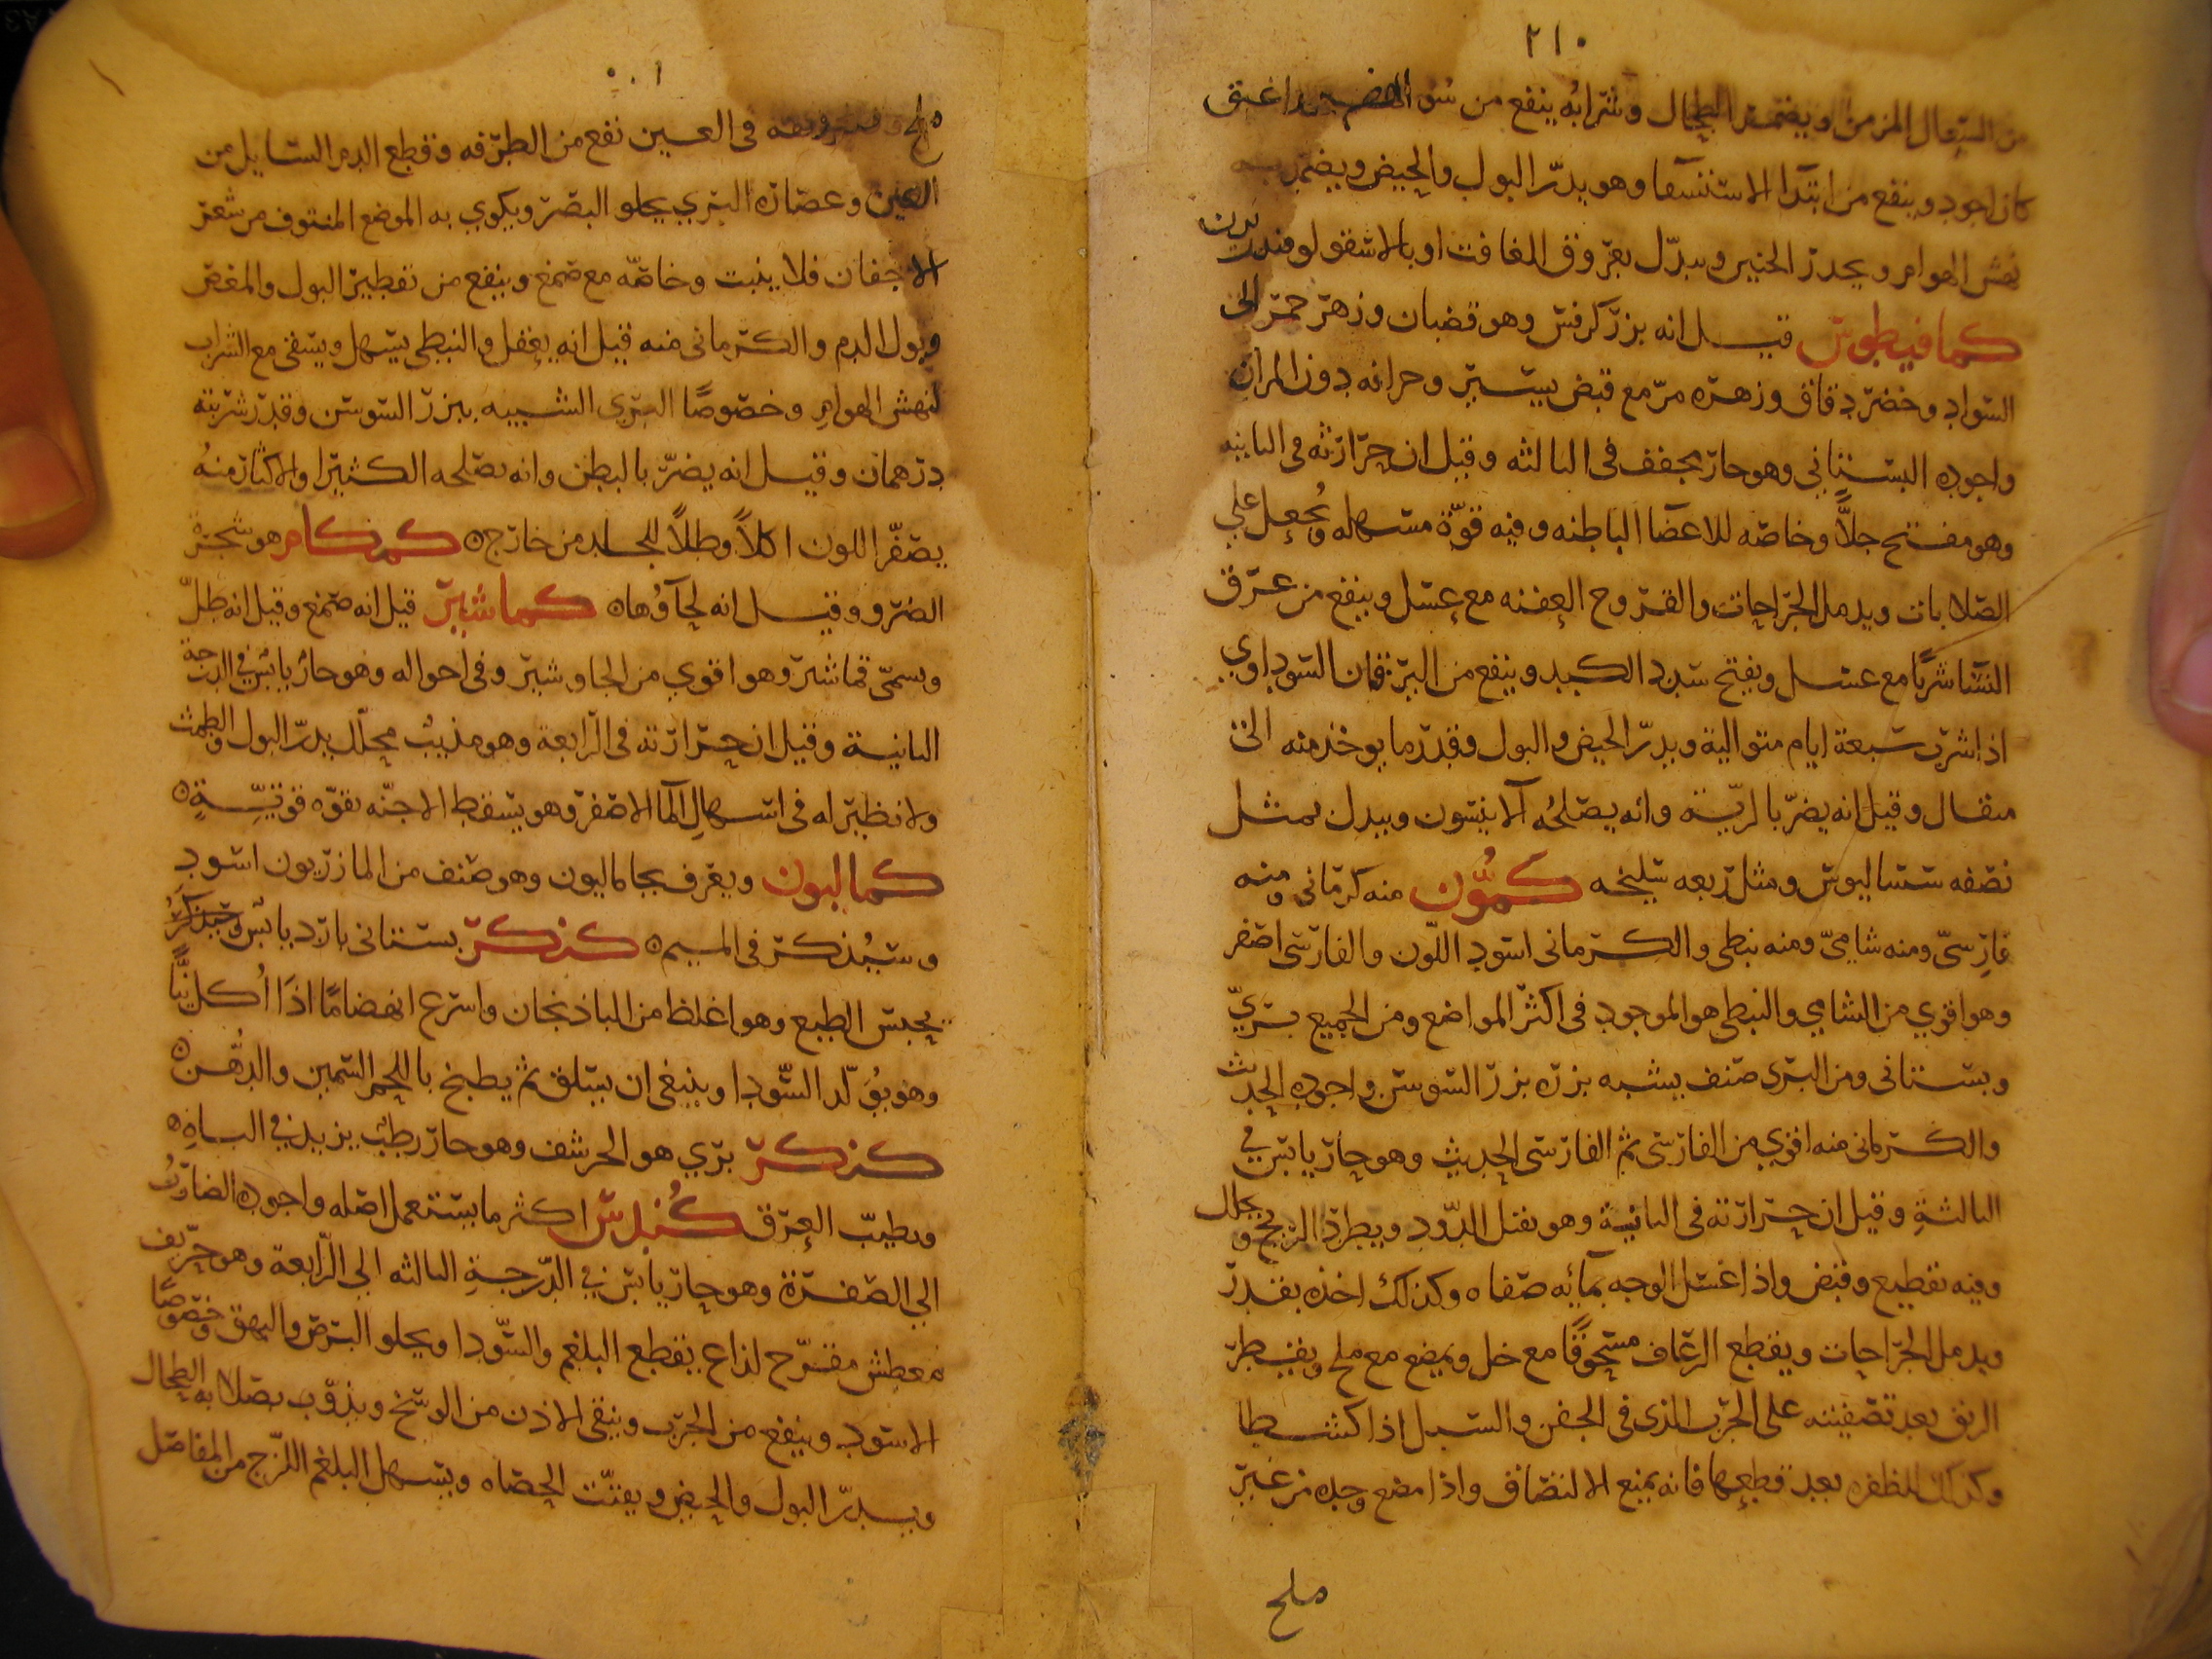 ٢١٠
من السعال المزمن ويضمد الطحال وشرابه ينفع من سو الهضم
كان اجود وينفع من ابتدا الاستسقا وهو يدر البول والحيض ويضمد به
نهش الهوام ويحدر الجنين ويبدل بعروق الغافت او بالاسقولوفندريون
كمافيطوس قيل انه بزر كرفس وهو قضبان وزهر حمر الى
السواد وخضر دقاق وزهره مر مع قبض يسير وحرافه دون المرارة
واجوده البستاني وهو حار يجفف في الثالثه وقيل ان حرارته في الثانيه
وهو مفتح جلاً وخاصه للاعضا الباطنه وفيه قوة مسهله ويجعل على
الصلابات ويدمل الجراحات والقروح العفنه مع عسل وينفع من عرق
النسا شربًا مع عسل ويفتح سدد الكبد وينفع من اليرقان السوداوي
اذا شرب سبعة ايام متوالية ويدر الحيض والبول وقدر ما يوخذ منه الى
مثقال وقيل انه يضر بالرية وانه يصلحه الانيسون ويبدل بمثل
نصفه سساليوس ومثل ربعه سليخه كمون منه كرماني ومنه
فارسي ومنه شامي ومنه نبطي والكرماني اسود اللون والفارسي اصفر
وهو اقوي من الشامي والنبطي هو الموجود في اكثر المواضع ومن الجميع بري
وبستاني ومن البري صنف يشبه بزره بزر السوسن واجوده الحديث
والكرماني منه اقوي من الفارسي ثم الفارسي الحديث وهو حار يابس في
الثالثة وقيل ان حرارته في الثانية وهو يقتل الدود ويطرد الريح ويحلل
وفيه تقطيع وقبض واذا غسل الوجه بمائه صفاه وكذلك اخذه بقدر
ويدمل الجراحات ويقطع الرعاف مسحوقًا مع خل ويمضغ مع ملح ويقطر
الريق بعد تصفيته على الجرب الذي في الجفن والسبل اذا كشطا
وكذلك للظفره بعد قطعها فانه يمنع الالتصاق واذا مضغ وحده من غير
ملح
ملح في العين نفع من الطرفه وقطع الدم السايل من
العين وعصاره البري يجلو البصر ويكوي به الموضع المنتوف من شعر
الاجفان فلا ينبت وخاصه مع صمغ وينفع من تقطير البول والمغص
وبول الدم والكرماني منه قيل انه يعقل والنبطي يسهل ويسقى مع الشراب
لنهش الهوام وخصوصًا البري الشبيه ببزر السوسن وقدر شربته
درهمان وقيل انه يضر بالبطن وانه يصلحه الكثيرا والاكثار منه
يصفر اللون اكلاً وطلاً للجلد من خارج ه كمكام هو شجرة
الضرو وقيل انه لحاؤها ه كماشير قيل انه صمغ وقيل انه طل
ويسمى قماشر وهو اقوي من الجاوشير وفي احواله وهو حار يابس في الدرجة
الثانية وقيل ان حرارته في الرابعة وهو مذيب محلل يدر البول والطمث
ولا نظير له في اسهال الما الاصفر وهو يسقط الاجنه بقوه قوية ه
كماليون ويعرف بجاماليون وهو صنف من المازريون اسود
وسيذكر في الميم ه كنكر بستاني بارد يابس
يحبس الطبع وهو اغلظ من الباذنجان واسرع انهضامًا اذا اكل نيًا
وهو يولد السودا وينبغي ان يسلق ثم يطبخ باللحم السمين والدهن ه
كنكر بري هو الحرشف وهو حار رطب يزيد في الباه ه
ويطيب العرق كندس اكثر ما يستعمل اصله واجوده الضارب
الي الصفرة وهو حار يابس في الدرجة الثالثه الى الرابعة وهو حريف
معطش مقرح لذاع يقطع البلغم والسودا ويجلو البرص والبهق وخصوصًا
الاسود وينفع من الجرب وينقى الاذن من الوسخ ويذوب بصلابه الطحال
ويدر البول والحيض ويفتت الحصاه ويسهل البلغم اللزج من المفاصل